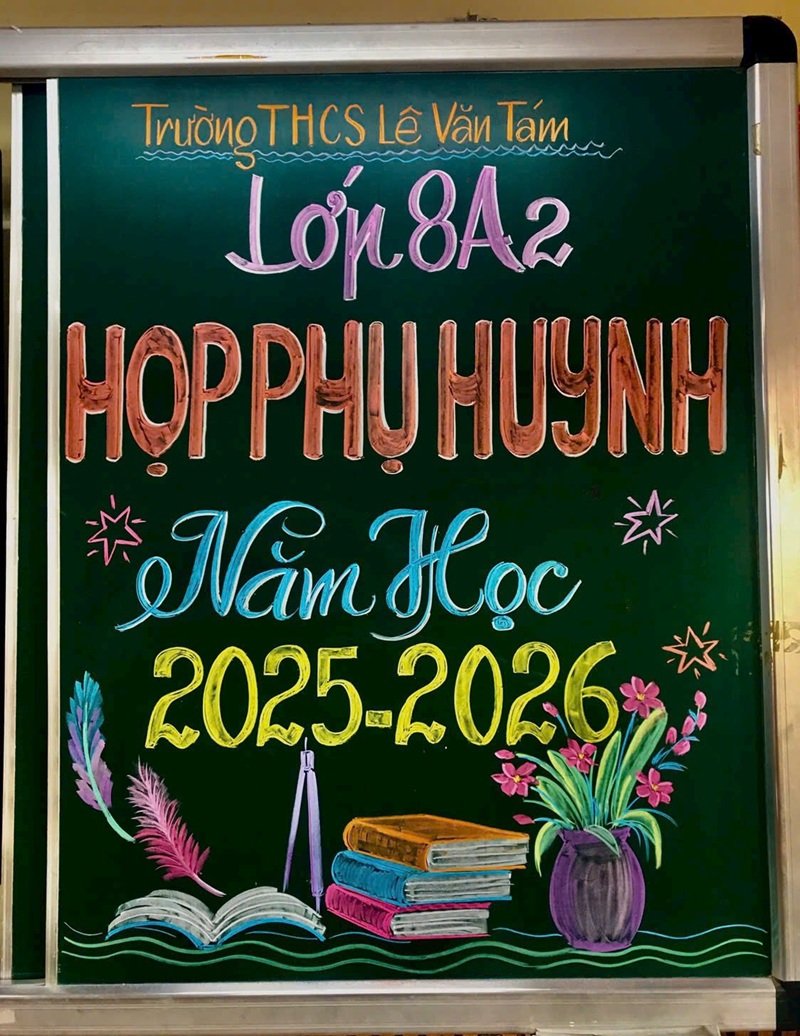 Trường THCS Lê Văn Tám
Lớp 8A2
HỌP PHỤ HUYNH
Năm Học
2025-2026